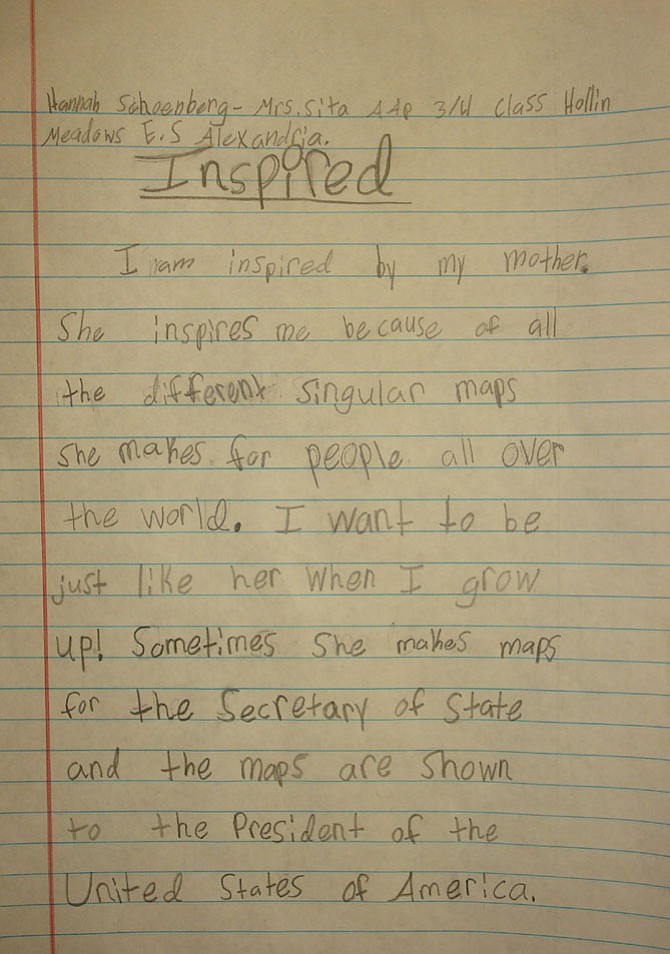 Hannah Schoenberg- Mrs. Sita AAP 3/4 Class Hollin
Meadows E.S Alexandria.
Inspired
I am inspired by my mother.
She inspires me because of all
the different singular maps
she makes for people all over
the world. I want to be
just like her when I grow
up! Sometimes she makes maps
for the Secretary of State
and the maps are shown
to the President of the
United States of America.